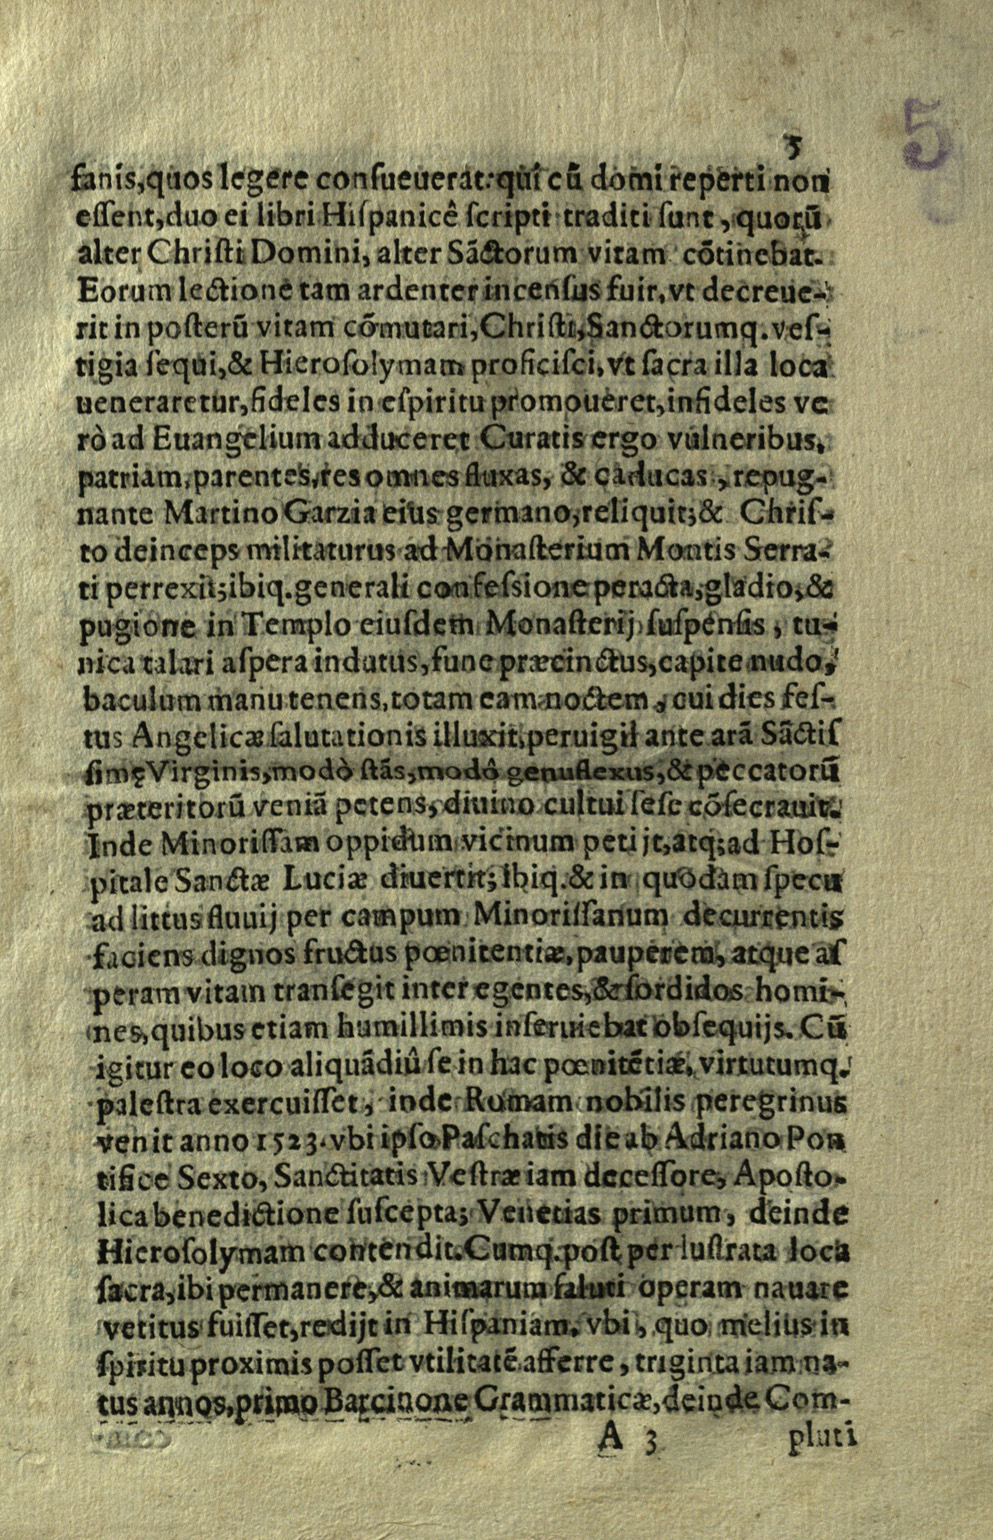 5
5
fanis,quos legere conſueuerat:quî cū domi reperti non
eſſent,duo ei libri Hiſpanicê ſcripti traditi ſunt, quorū
alter Chriſti Domini, alter Sāctorum vitam cōtinebat.
Eorum lectione tam ardenter incenſus fuit, vt decreue-
rit in poſterū vitam cōmutari,Chriſti,Sanctorumq. veſ-
tigia ſequi,& Hieroſolymam proficiſci, vt ſacra illa loca
ueneraretur,fideles in eſpiritu promoueret,infideles ve
rò ad Euangelium adduceret Curatis ergo vulneribus,
patriam,parentes,res omnes fluxas, & caducas, repug-
nante Martino Garzia eius germano,reliquit;& Chriſ-
to deinceps militaturus ad Monaſterium Montis Serra-
ti perrexit;ibiq. generali confeſsione peracta,gladio,&
pugione in Templo eiuſdem Monaſterij ſuſpenſis, tu-
nica talari aſpera indutus,fune præcinctus,capite nudo,
baculum manu tenens,totam eam noctem, cui dies feſ-
tus Angelicæ ſalutationis illuxit,peruigil ante arā Sāctiſ
ſimę Virginis,modò ſtās,modò genuflexus,& peccatorū
præteritorū veniā petens, diuino cultui ſeſe cōſecrauit.
Inde Minoriſſam oppidum vicinum petijt,atq;ad Hoſ-
pitale Sanctæ Luciæ diuertit; ibiq.& in quodam ſpecu
ad littus fluuij per campum Minoriſſanum decurrentis
faciens dignos fructus pœnitentiæ,pauperem, atque aſ
peram vitam tranſegit inter egentes,& ſordidos homi-
nes,quibus etiam humillimis inſeruiebat obſequijs. Cū
igitur eo loco aliquādiû ſe in hac pœnitētiæ, virtutumq.
paleſtra exercuiſſet, inde Romam nobilis peregrinus
venit anno 1523. vbi ipſo Paſchatis die ab Adriano Pon
tifice Sexto, Sanctitatis Veſtræ iam deceſſore, Apoſto-
lica benedictione ſuſcepta; Venetias primum, deinde
Hieroſolymam contendit. Cumq. poſt perluſtrata loca
ſacra,ibi permanere,& animarum ſaluti operam nauare
vetitus fuiſſet,redijt in Hiſpaniam, vbi, quo melius in
ſpiritu proximis poſſet vtilitatē afferre, triginta iam na-
tus annos,primo Barcinone Grammaticæ,deinde Com-
A 3 pluti